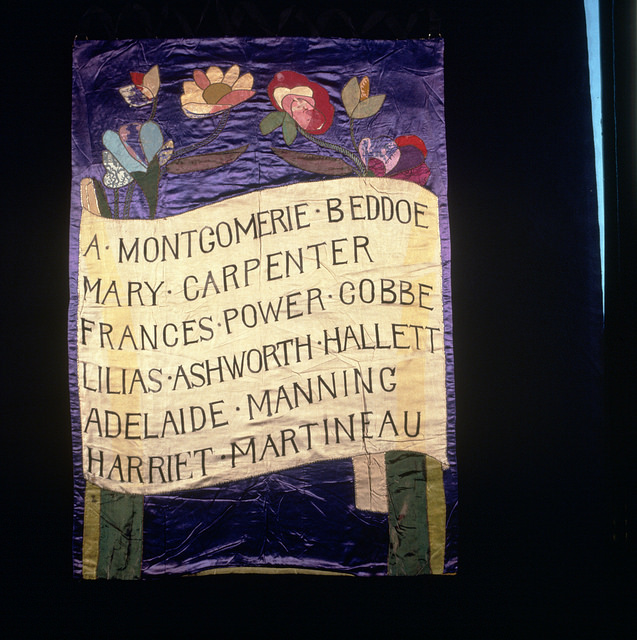 A· MONTGOMERIE· BEDDOE
MARY· CARPENTER
FRANCES·POWER·COBBE
LILIAS·ASHWORTH·HALLETT
ADELAIDE·MANNING
HARRIET·MARTINEAU